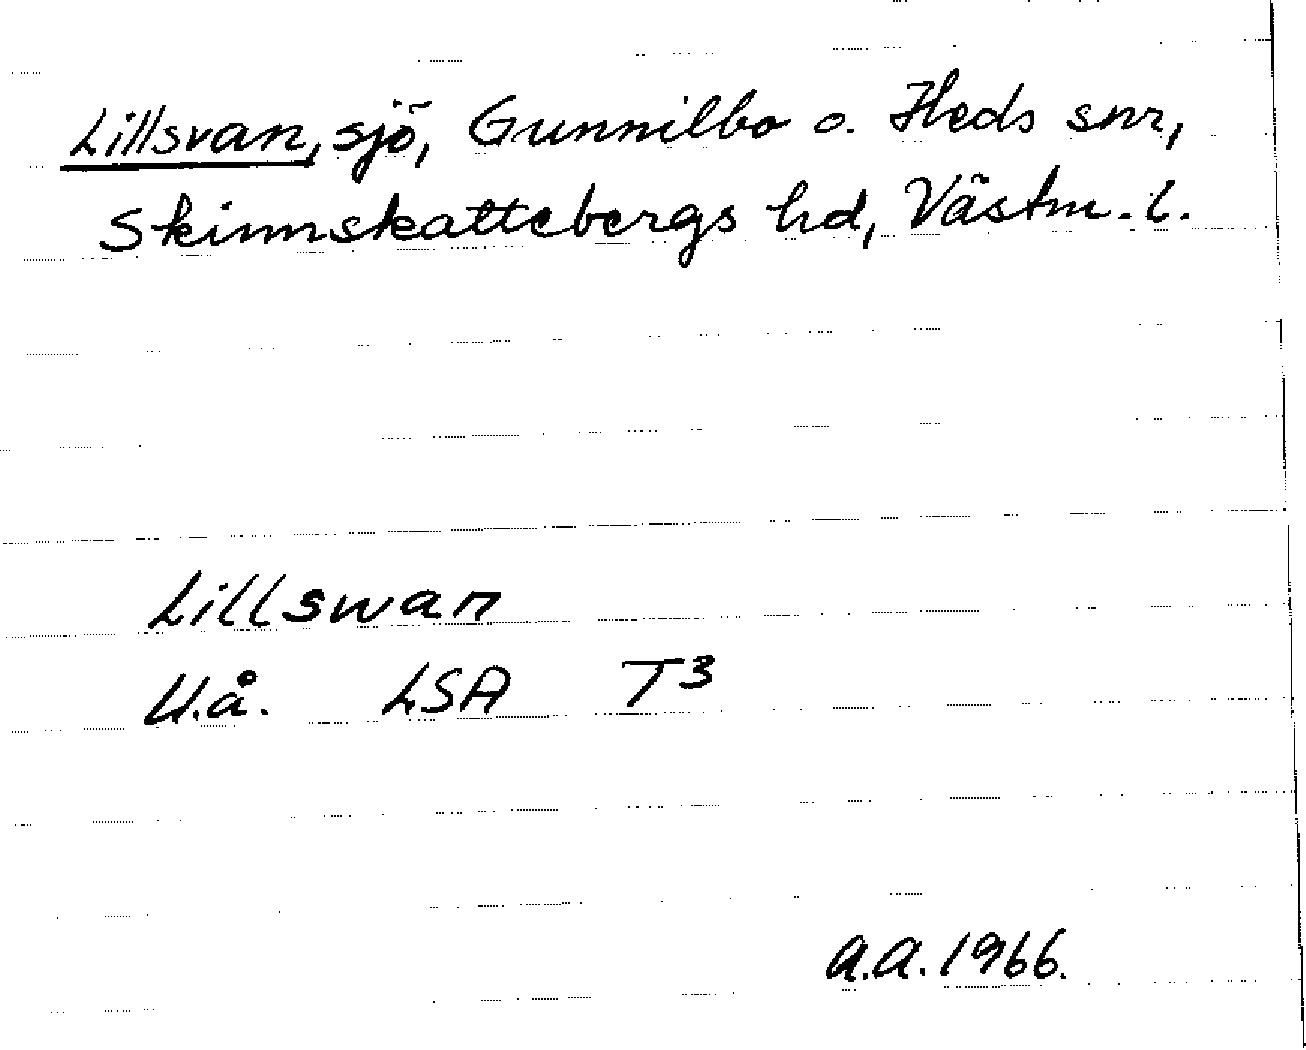 Lillsvan, sjö, Gunnilbo o. Heds snr,
Skinnskattebergs hd, Västm. l.
Lillswan
U.å. LSA T3
A.A. 1966.